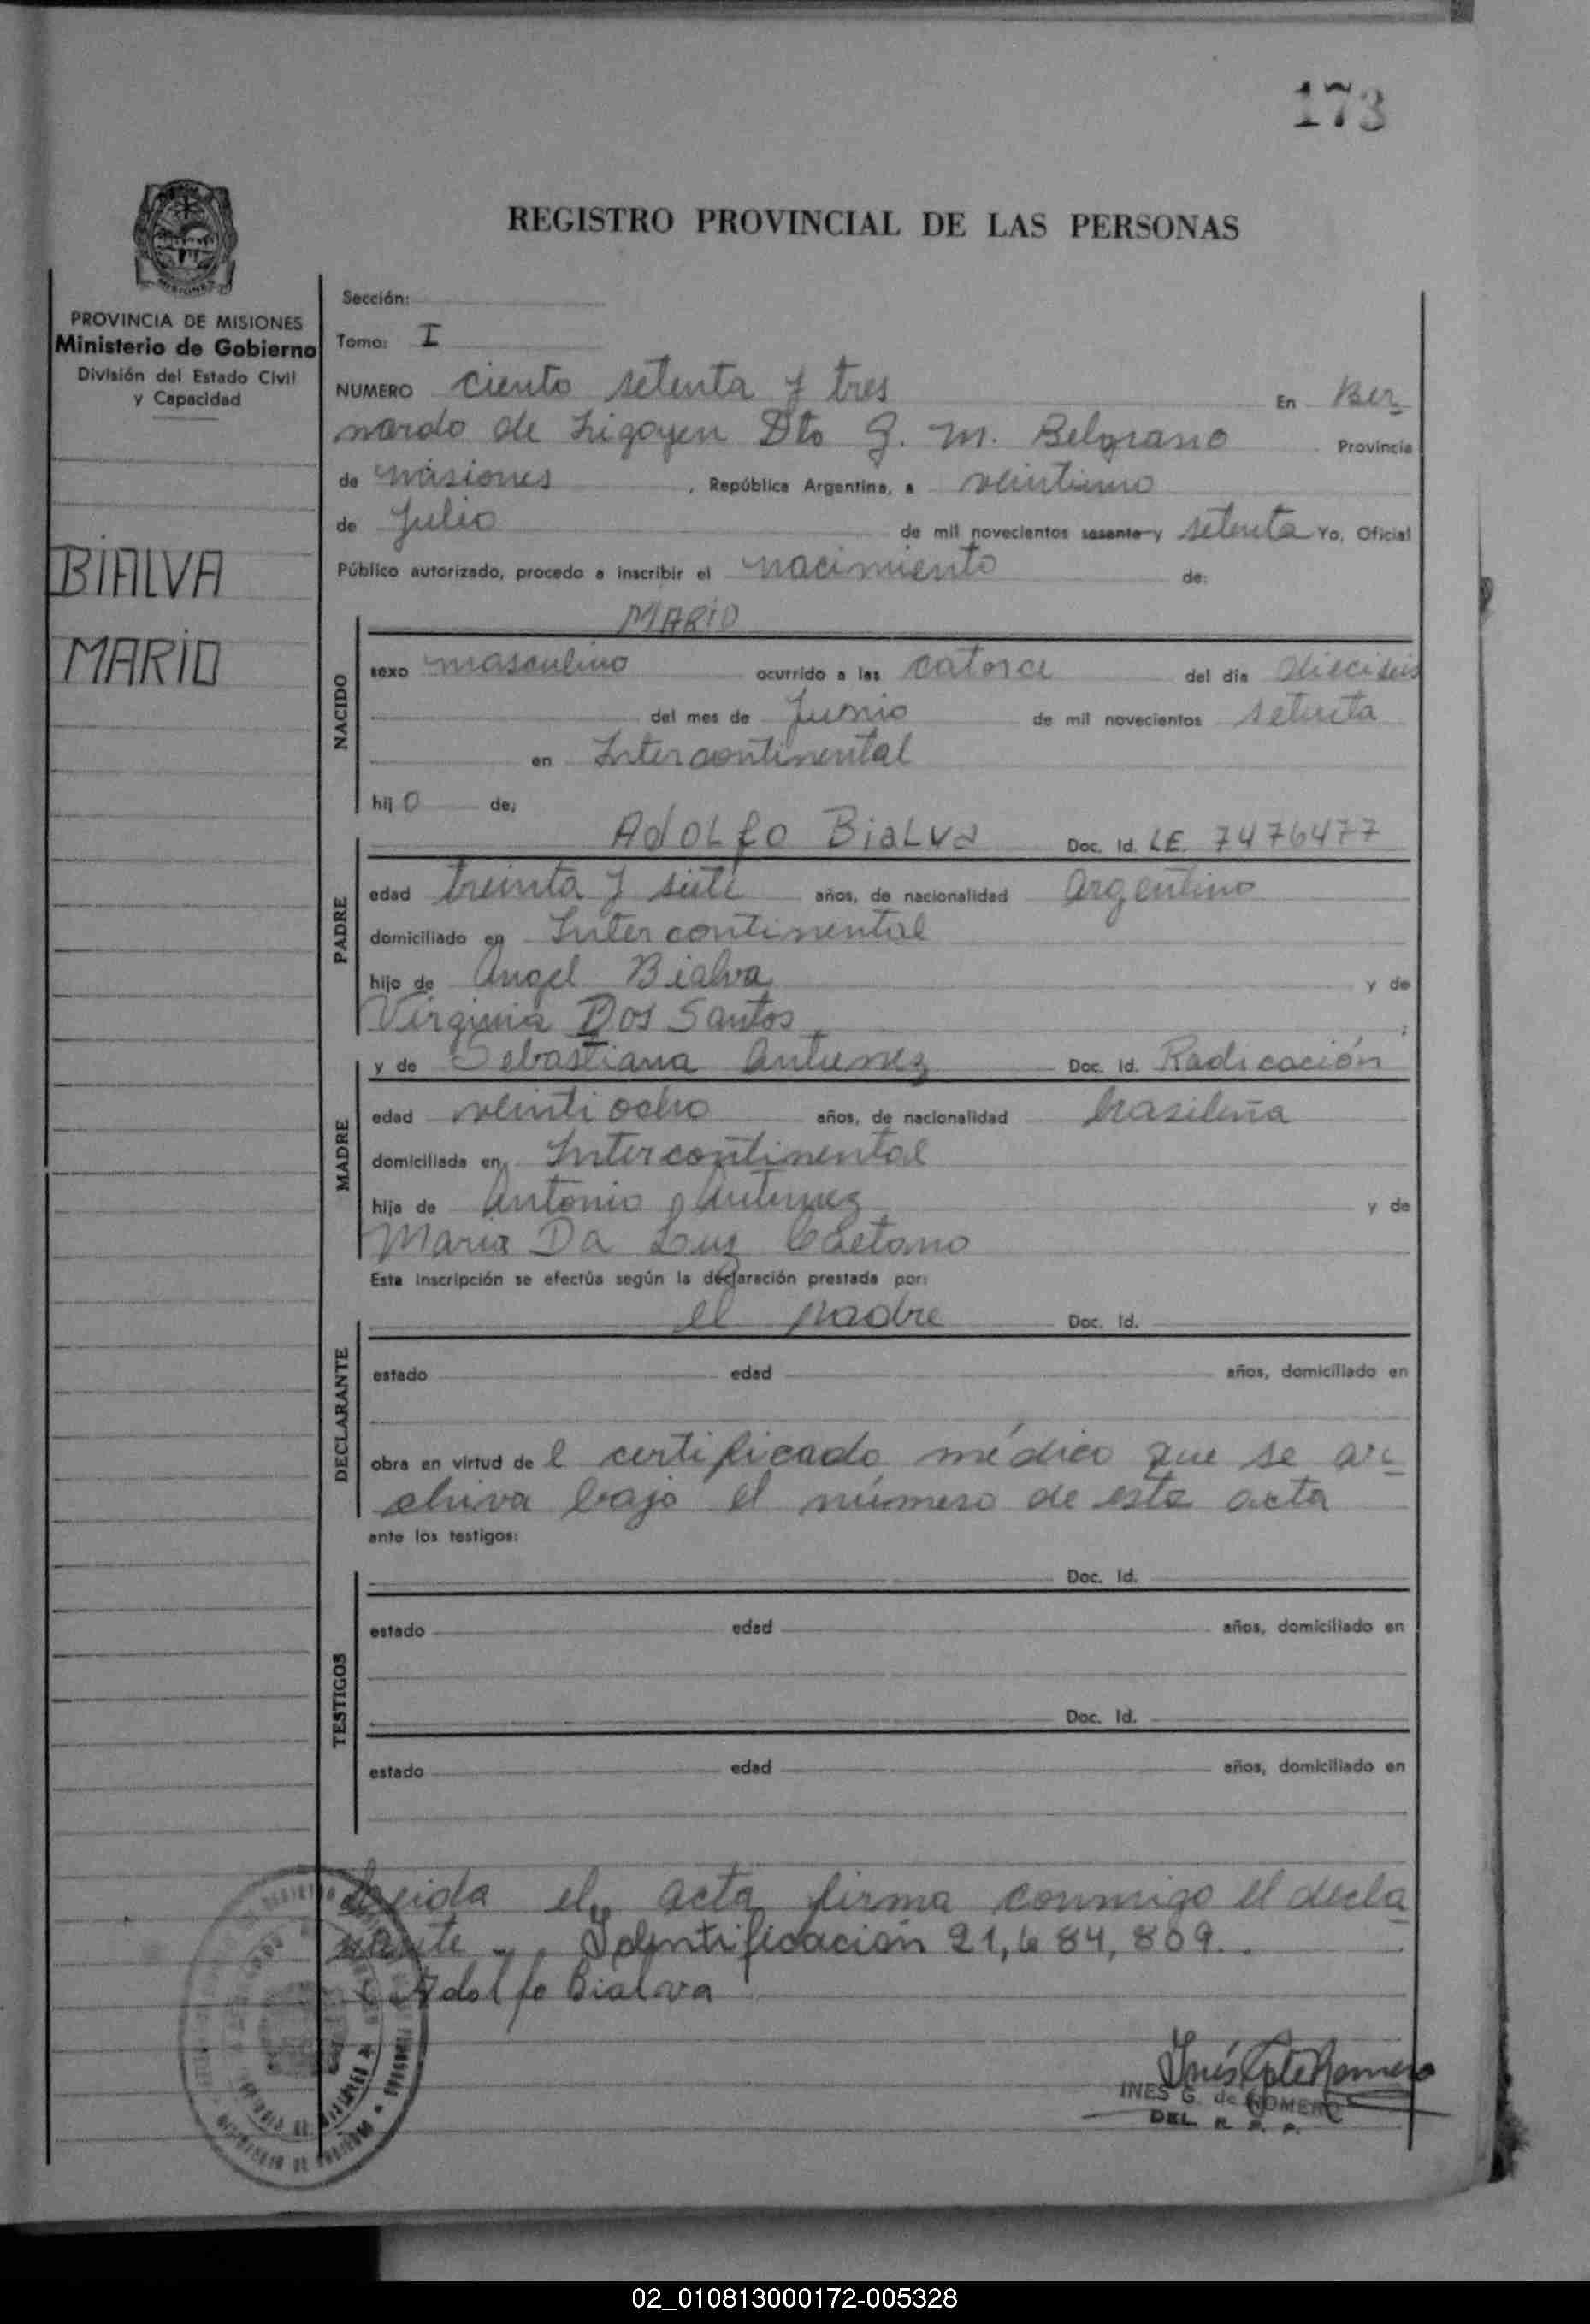 173
REGISTRO PROVINCIAL DE LAS PERSONAS
MISIONES
PROVINCIA DE MISIONES
Ministerio de Gobierno
División del Estado Civil
y Capacidad
BIALVA
MARIO
Sección:
Tomo: I
NUMERO ciento setenta y tres En Ber
nardo de Irigoyen Dto G. M. Belgrano Provincia
de misiones, República Argentina, a veintiuno
de Julio de mil novecientos sesenta y setenta Yo, Oficial
Público autorizado, procedo a inscribir el nacimiento de:
MARIO
NACIDO
sexo masculino ocurrido a las catorce del día dieciseis
del mes de Junio de mil novecientos setenta
en Intercontinental
hij o de:
ADOLFO BIALVA Doc. Id. LE. 7476477
PADRE
edad treinta y siete años, de nacionalidad argentino
domiciliado en Intercontinental
hijo de Angel Bialva y de
Virginia Dos Santos ;
y de Sebastiana Antunez Doc. Id. Radicación
MADRE
edad veintiocho años, de nacionalidad brasileña
domiciliada en Intercontinental
hija de Antonio Antunez y de
Maria Da Luz Caetano
Esta inscripción se efectúa según la declaración prestada por:
el padre Doc. Id.
DECLARANTE
estado edad años, domiciliado en
obra en virtud de l certificado médico que se ar
chiva bajo el número de esta acta
ante los testigos:
Doc. Id.
TESTIGOS
estado edad años, domiciliado en
Doc. Id.
estado edad años, domiciliado en
Leida el acta firma conmigo el decla
rante . Identificación 21,684,809..
Adolfo Bialva
INES G. de ROMERO
DEL R. P. P.
02_010813000172-005328